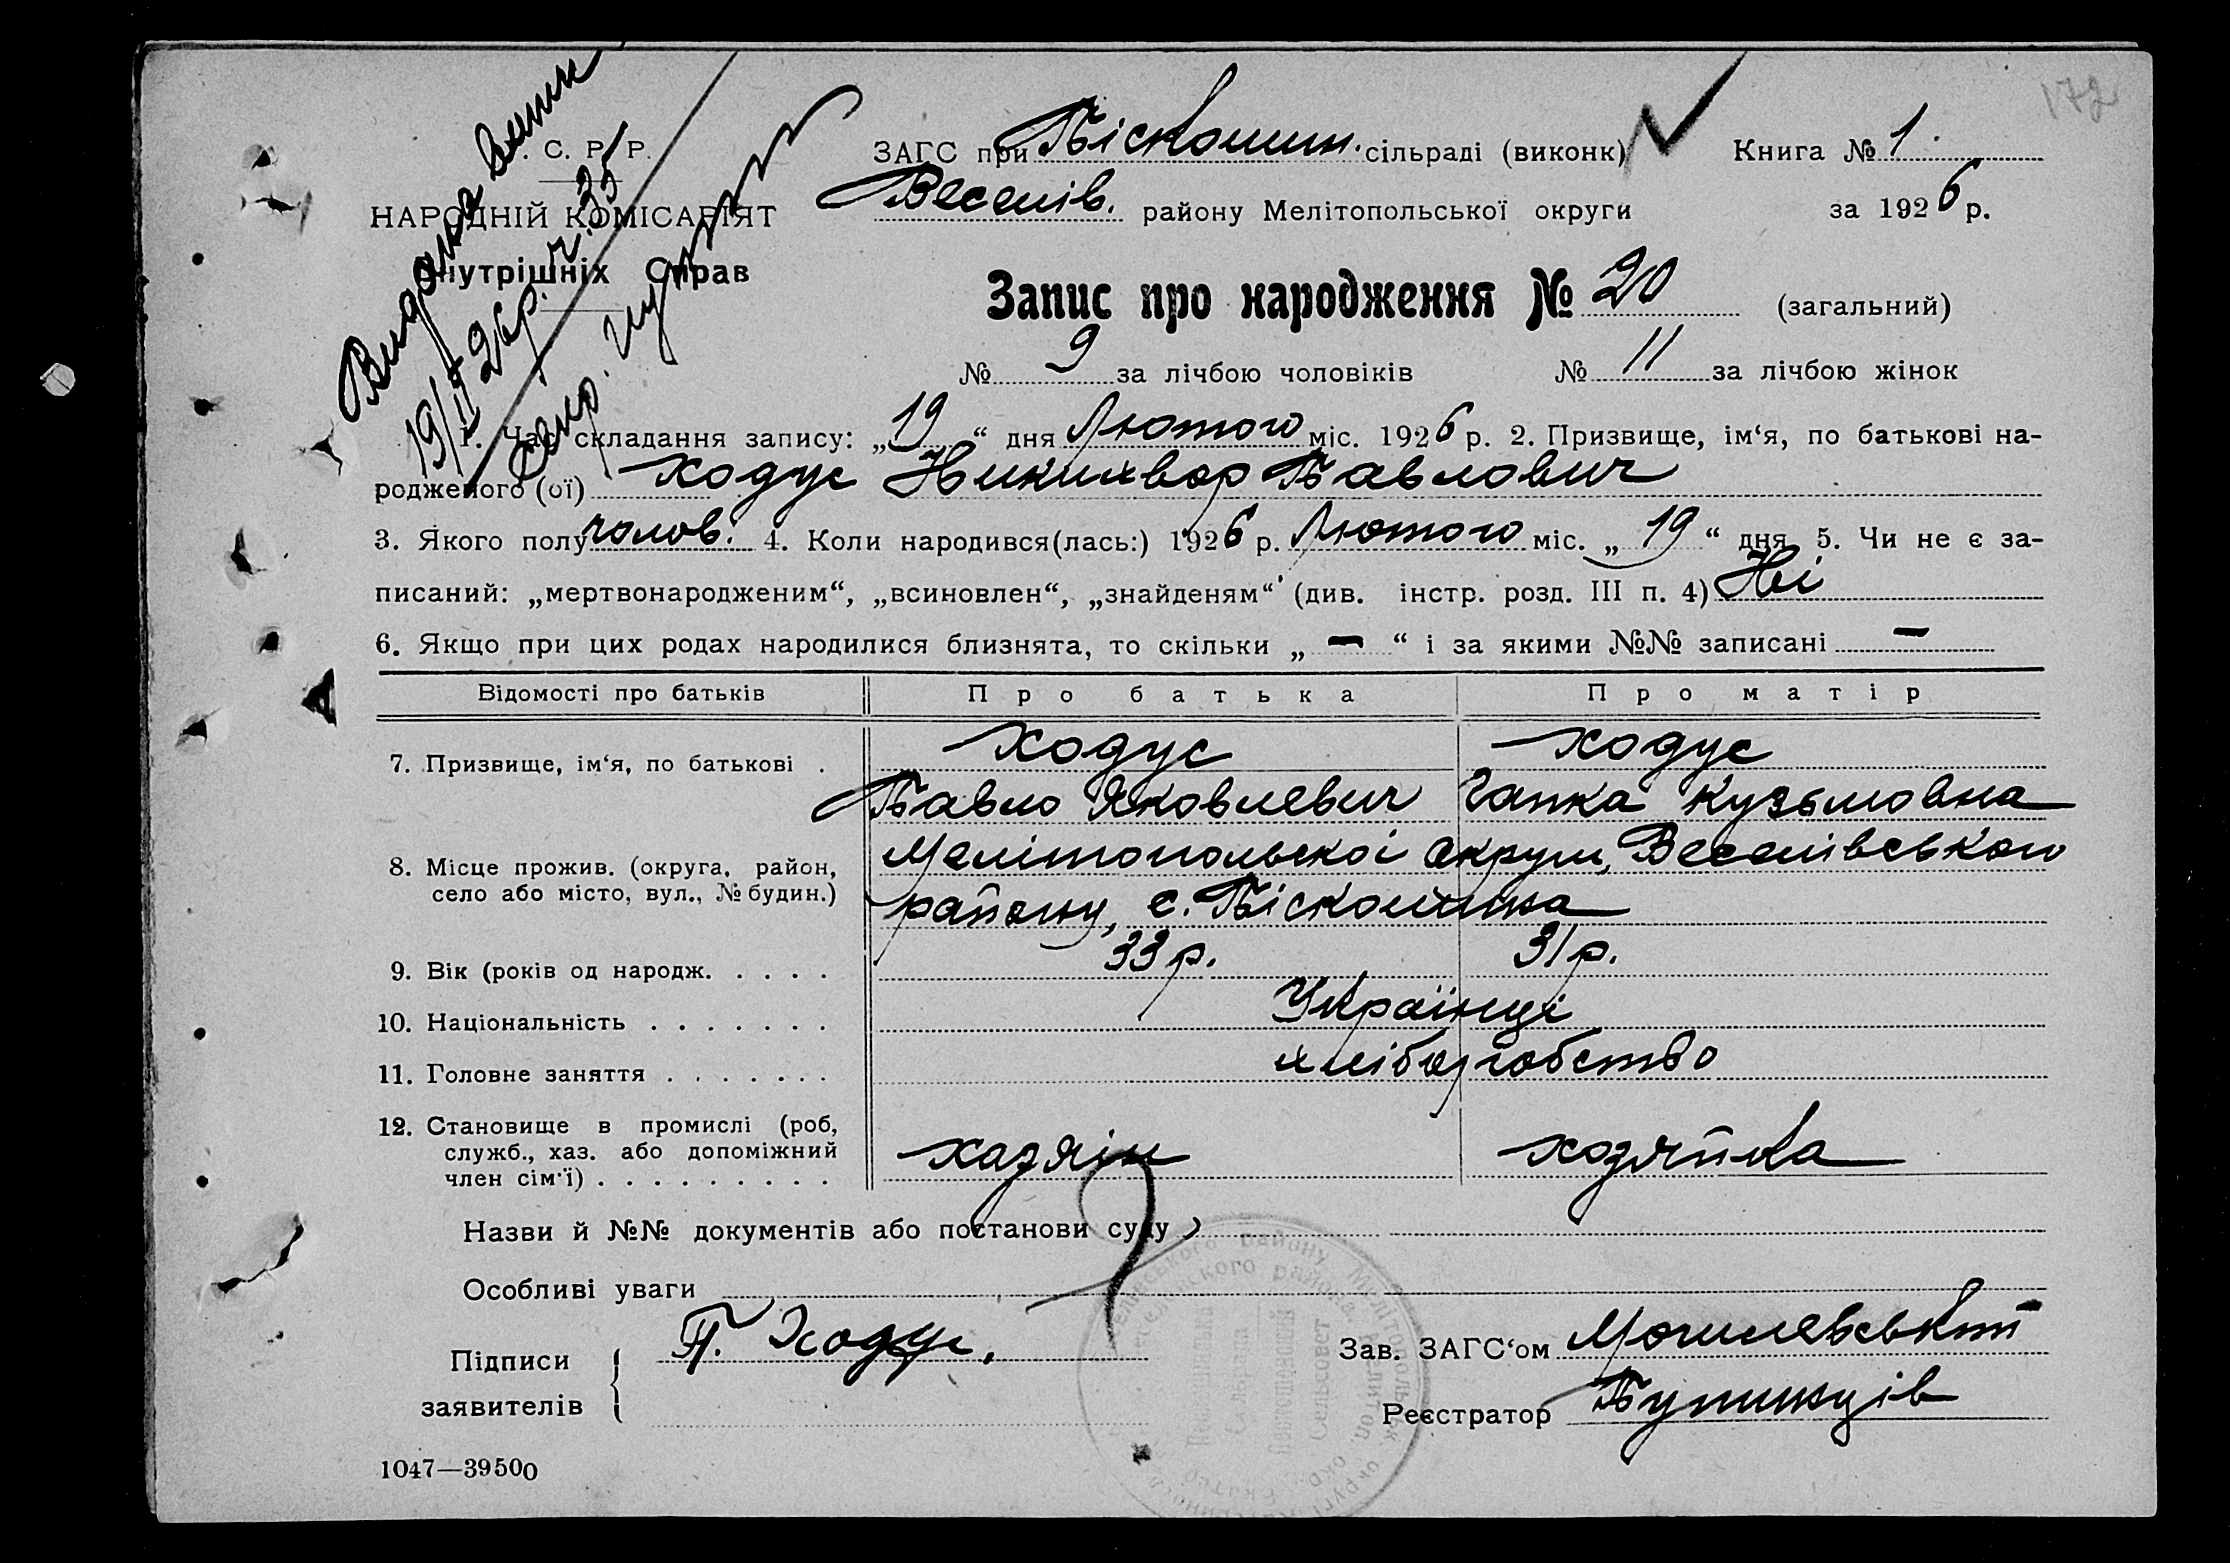 172
Видана випис
19/II 26 р. ч. 35
. С. Р. Р.
НАРОДНІЙ КОМІСАРІЯТ
Внутрішніх Справ
ЗАГС при Піскошин. сільраді (виконк) Книга № 1.
Веселів. району Мелітопольської округи за 1926 р.
Запис про народження № 20 (загальний)
№ 9 за лічбою чоловіків № 11 за лічбою жінок
1. Час складання запису: „19“ дня Лютого міс. 1926 р. 2. Призвище, ім‘я, по батькові на-
родженого (ої) Ходус Никихвор Павлович
3. Якого полу чолов. 4. Коли народився(лась:) 1926 р. Лютого міс. „19“ дня 5. Чи не є за-
писаний: „мертвонародженим“, „всиновлен“, „знайденям“ (див. інстр. розд. III п. 4) Ні
6. Якщо при цих родах народилися близнята, то скільки „—“ і за якими №№ записані —
Відомості про батьків Про батька Про матір
7. Призвище, ім‘я, по батькові . Ходус Ходус
Павло Яковлевич Гапка Кузьмовна
8. Місце прожив. (округа, район, Мелітопольскоі округи, Веселівського
село або місто, вул., № будин.) району, с. Піскошина
9. Вік (років од народж. . . . . 33 р. 31 р.
10. Національність . . . . . . . Українці
11. Головне заняття . . . . . . . хліборобство
12. Становище в промислі (роб,
служб., хаз. або допоміжний хазяін хозяйка
член сім‘ї) . . . . . . . . .
Назви й №№ документів або постанови суду
Особливі уваги
Підписи П. Ходус. Зав. ЗАГС‘ом Могилевський
заявителів Реєстратор
1047—39500